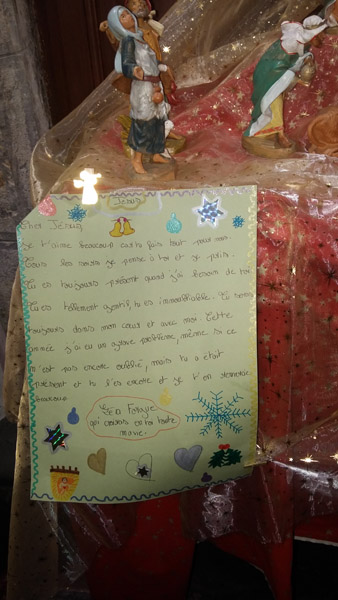 Jésus
Cher Jésus,
Je t'aime beaucoup car tu fais tout pour moi.
Tous les soirs je pense à toi et je prie.
Tu es toujours présent quand j'ai besoin de toi
Tu es tellement gentil, tu es inoubliable. Tu seras
toujours dans mon cœur et avec moi. Cette
année j'ai eu un grave problème, même si ce
n'est pas encore oublié, mais tu a était
présent et tu l'es encore et je t'en remercie
beaucoup
qui croira en toi toute
ma vie.